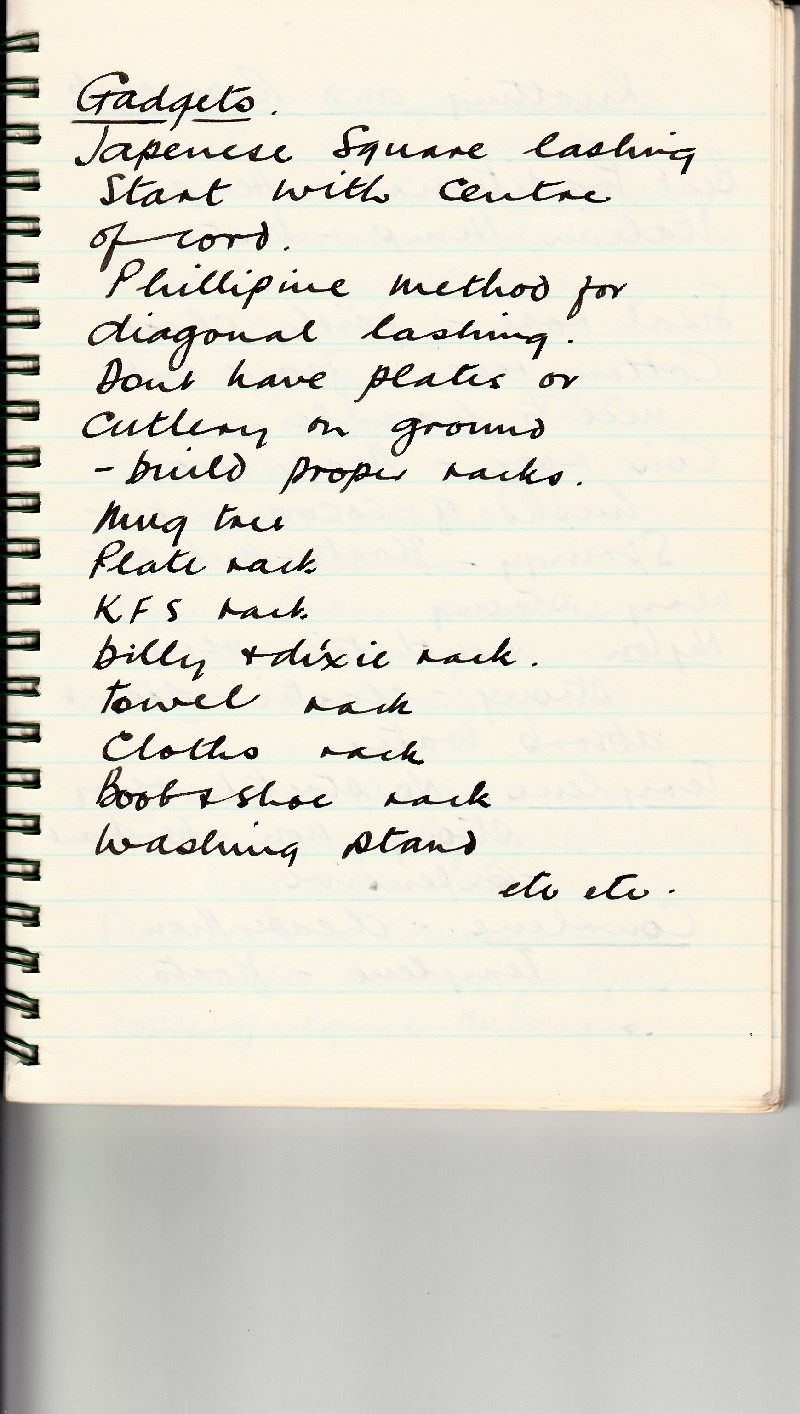 Gadgets.
Japenese Square lashing
Start with centre
of cord.
Phillipine method for
diagonal lashing.
Dont have plates or
Cutlery on ground
- build proper racks.
Mug tree
Plate rack
KFS rack
billy + dixie rack.
towel rack
Cloths rack
Boot & Shoe rack
Washing stand
etc etc.